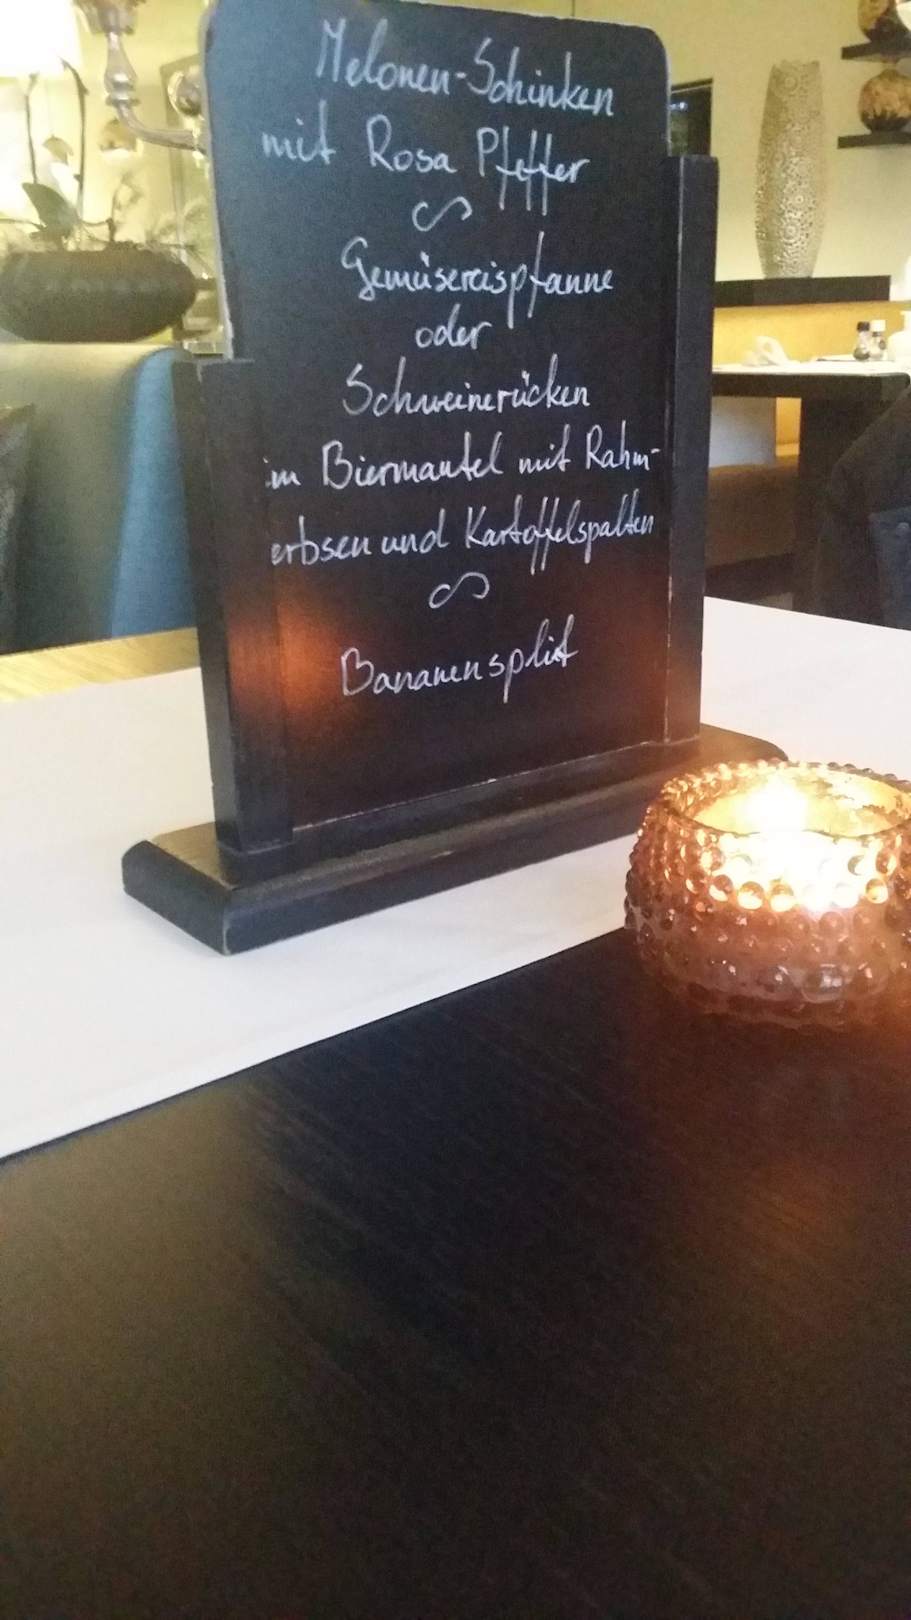 Melonen-Schinken
mit Rosa Pfeffer
Gemüsereispfanne
oder
Schweinerücken
im Biermantel mit Rahm-
erbsen und Kartoffelspalten
Bananensplit